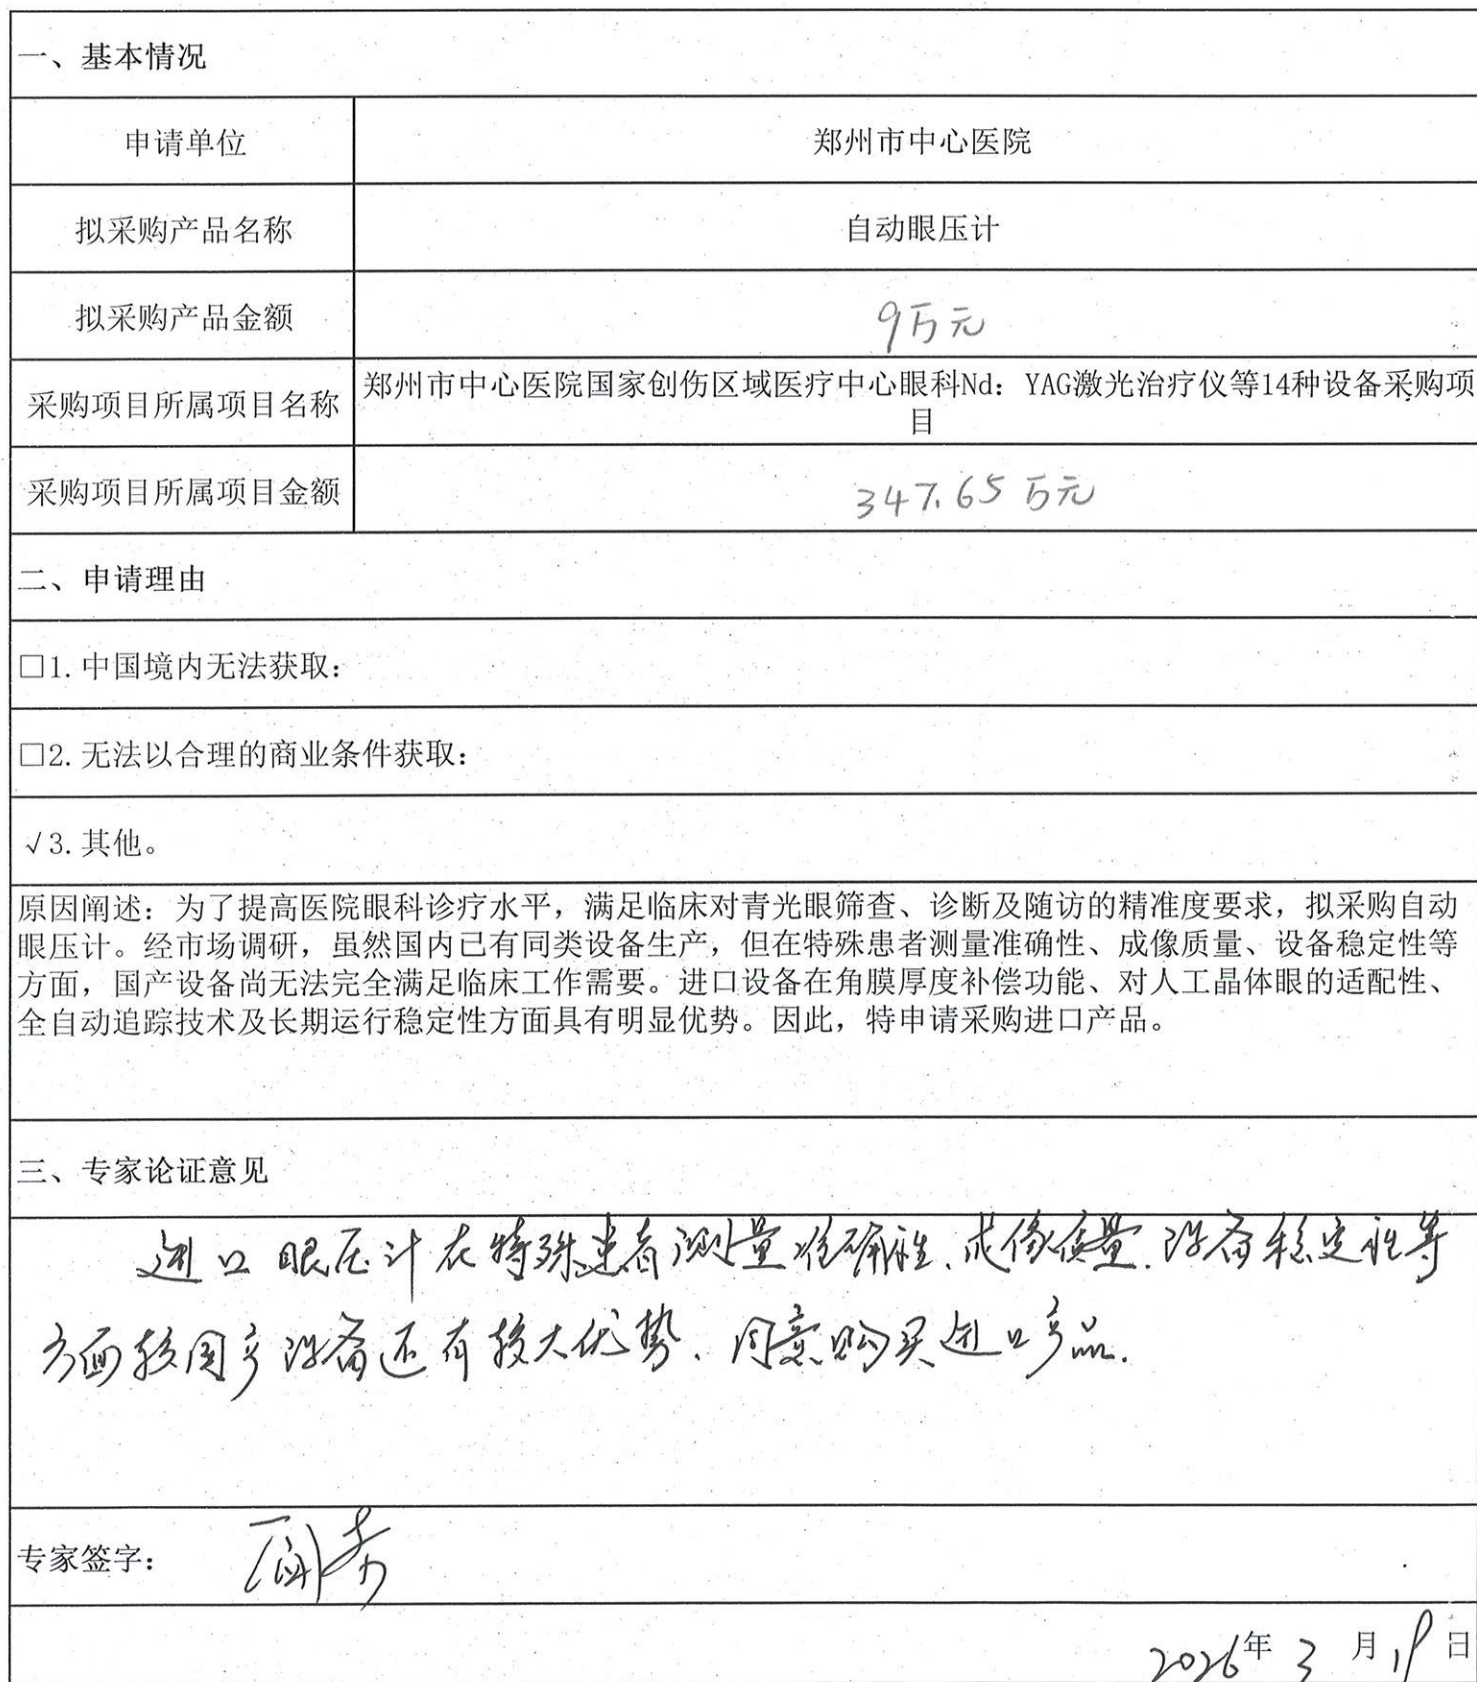 一、基本情况
申请单位
郑州市中心医院
拟采购产品名称
自动眼压计
拟采购产品金额
9万元
采购项目所属项目名称
郑州市中心医院国家创伤区域医疗中心眼科Nd：YAG激光治疗仪等14种设备采购项
目
采购项目所属项目金额
347.65万元
二、申请理由
□1.中国境内无法获取：
□2.无法以合理的商业条件获取：
√3.其他。
原因阐述：为了提高医院眼科诊疗水平，满足临床对青光眼筛查、诊断及随访的精准度要求，拟采购自动
眼压计。经市场调研，虽然国内已有同类设备生产，但在特殊患者测量准确性、成像质量、设备稳定性等
方面，国产设备尚无法完全满足临床工作需要。进口设备在角膜厚度补偿功能、对人工晶体眼的适配性、
全自动追踪技术及长期运行稳定性方面具有明显优势。因此，特申请采购进口产品。
三、专家论证意见
进口眼压计在特殊患者测量准确性、成像质量、设备稳定性等
方面较国产设备还有较大优势、同意购买进口产品.
专家签字：
2026年3月 日